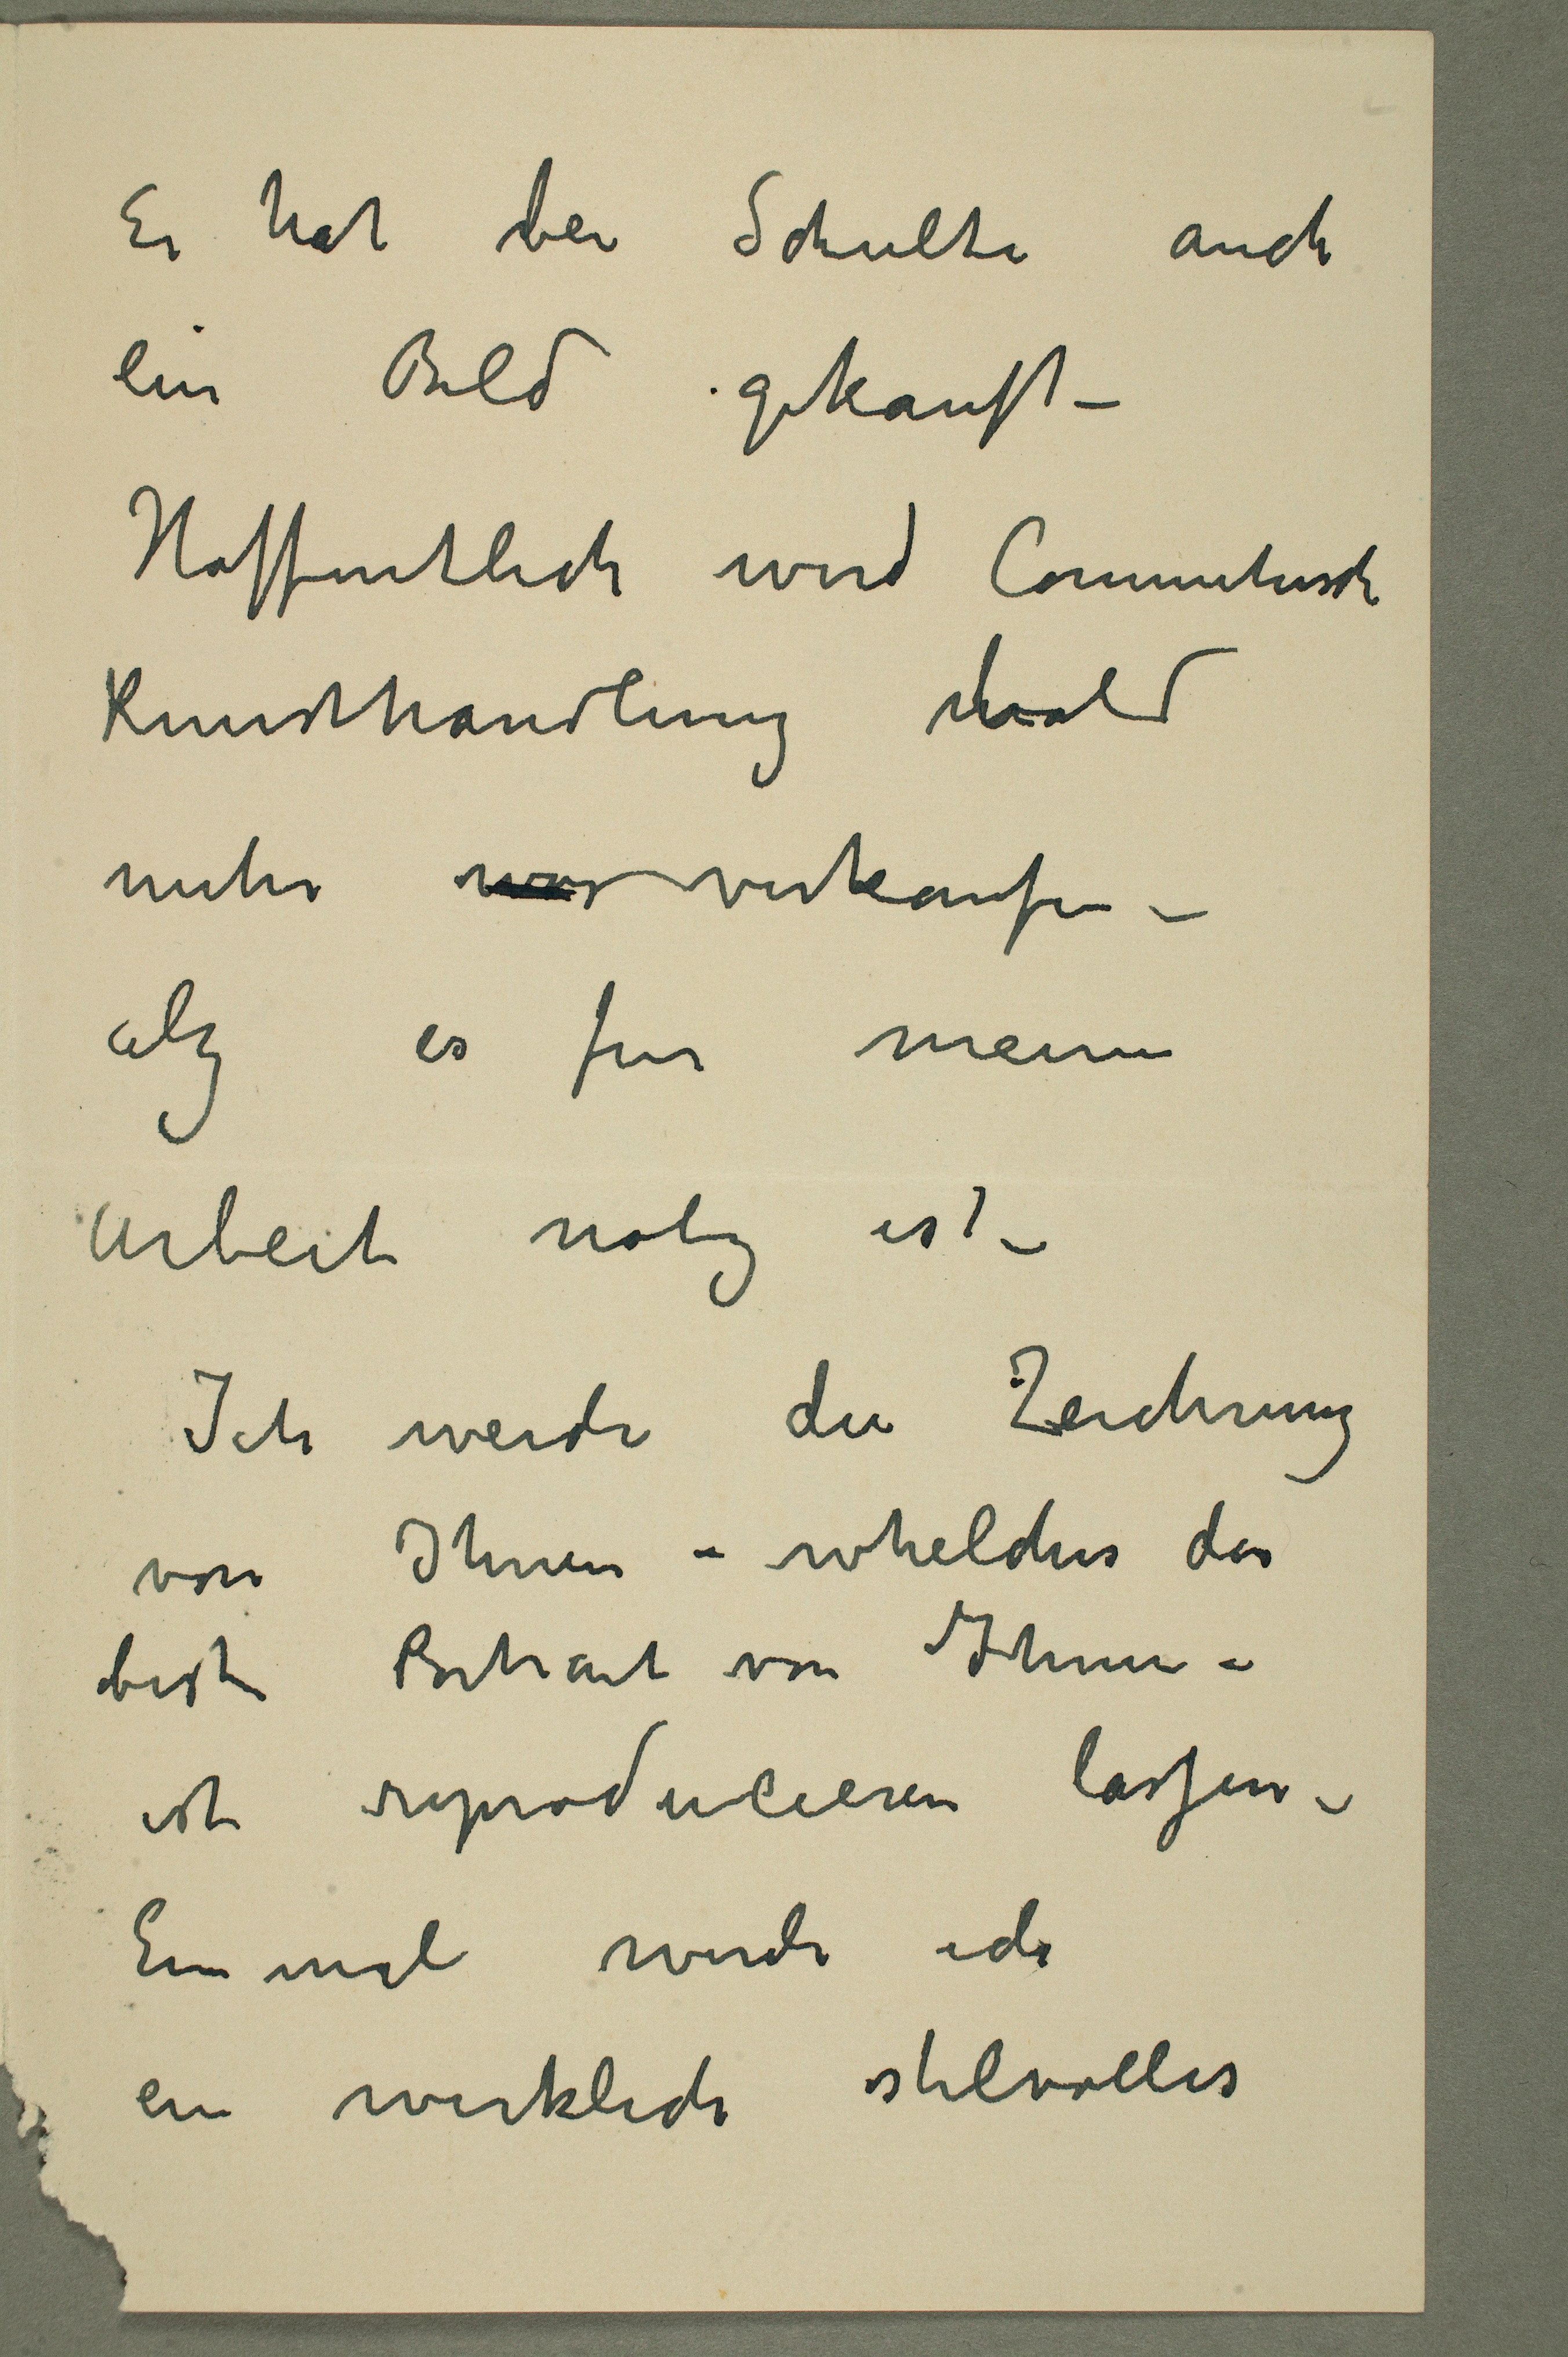 Er hat bei Schulte auch
ein Bild gekauft –
Hoffentlich wird Commetersch
Kunsthandlung bald
mehr verkaufen –
alz es für meine
Arbeit nötig ist –
Ich werde die Zeichnung
von Ihnen – whelches das
beste Portrait von Ihnen –
ist reproducieren lassen –
Einmal werde ich
ein wirklich stilvolles